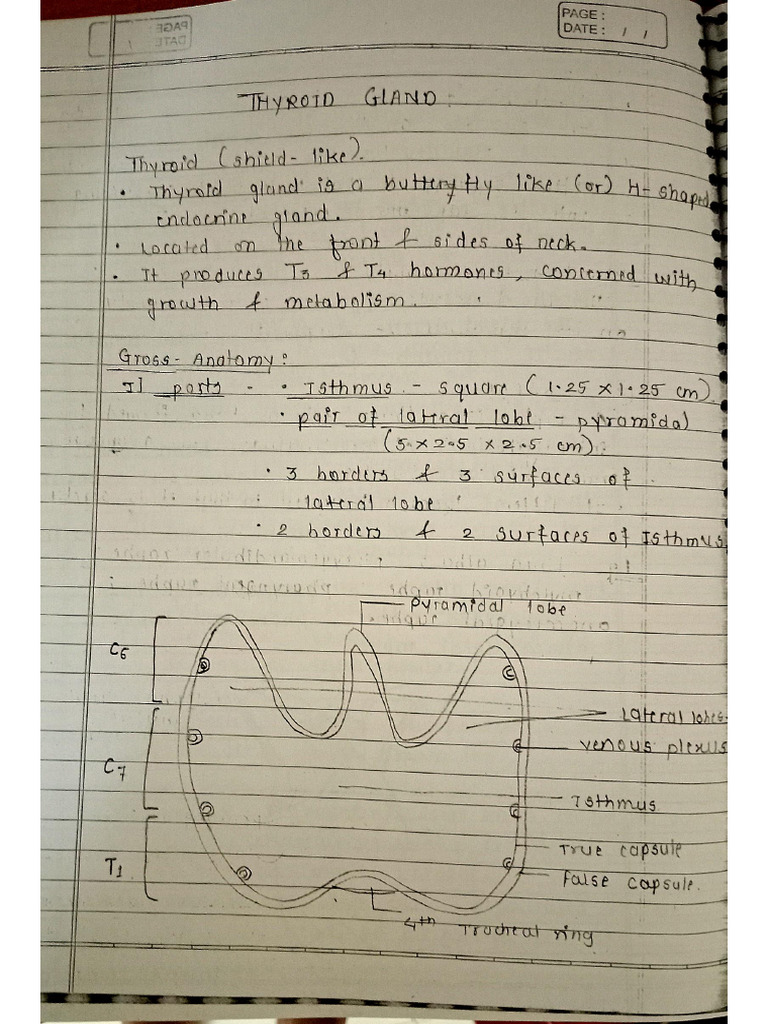 PAGE :
DATE : / /
THYROID GLAND :
Thyroid (shield-like).
• Thyroid gland is a butteryfly like (or) H-shaped
endocrine gland.
• Located on the front & sides of neck.
• It produces T3 & T4 hormones, concerned with
growth & metabolism.
Gross-Anatomy :
parts - • Isthmus - square (1.25 × 1.25 cm)
• pair of lateral lobe - pyramidal
(5 × 2.5 × 2.5 cm).
• 3 borders & 3 surfaces of
lateral lobe
• 2 borders & 2 surfaces of Isthmus
Pyramidal lobe
C6
Lateral lobes
venous plexus
C7
Isthmus
True capsule
T1
False capsule.
4th Tracheal ring